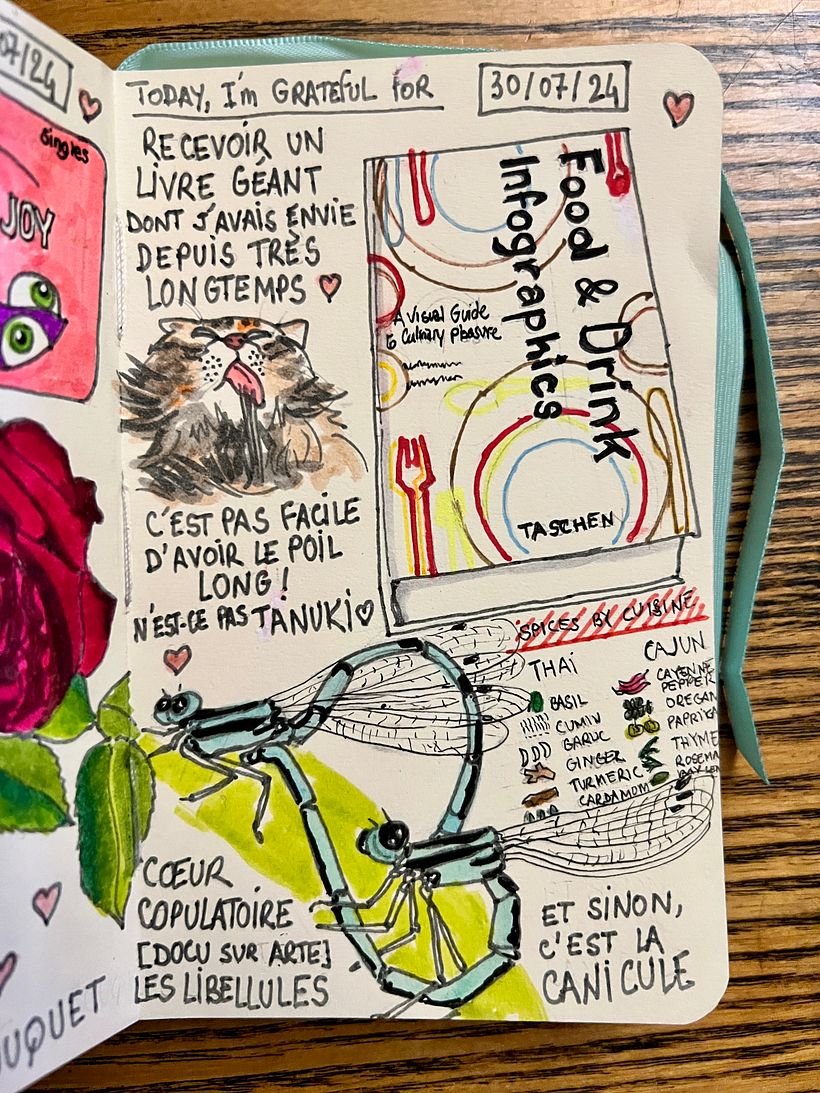 07/24
Singles
JOY
UQUET
TODAY, I'm GRATEFUL FOR
30/07/24
RECEVOIR UN
LIVRE GÉANT
DONT J'AVAIS ENVIE
DEPUIS TRÈS
LONGTEMPS
Food & Drink
Infographics
A Visual Guide
to Culinary Pleasure
TASCHEN
C'EST PAS FACILE
D'AVOIR LE POIL
LONG !
N'EST-CE PAS TANUKI
SPICES BY CUISINE
THAI
BASIL
CUMIN
GARLIC
GINGER
TURMERIC
CARDAMOM
CAJUN
CAYENNE
PEPPER
OREGAN
PAPRIKA
THYME
ROSEMA
CŒUR
COPULATOIRE
[DOCU SUR ARTE]
LES LIBELLULES
ET SINON,
C'EST LA
CANICULE